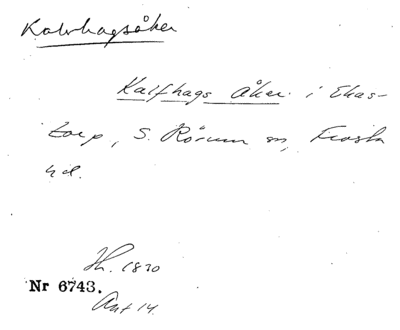 Kalvhagsåker
Kalfhags åker i Ekas-
torp, S. Rörum sn, Frosta
hd.
Sk. 1820
Nr 6743.
Ant 14.